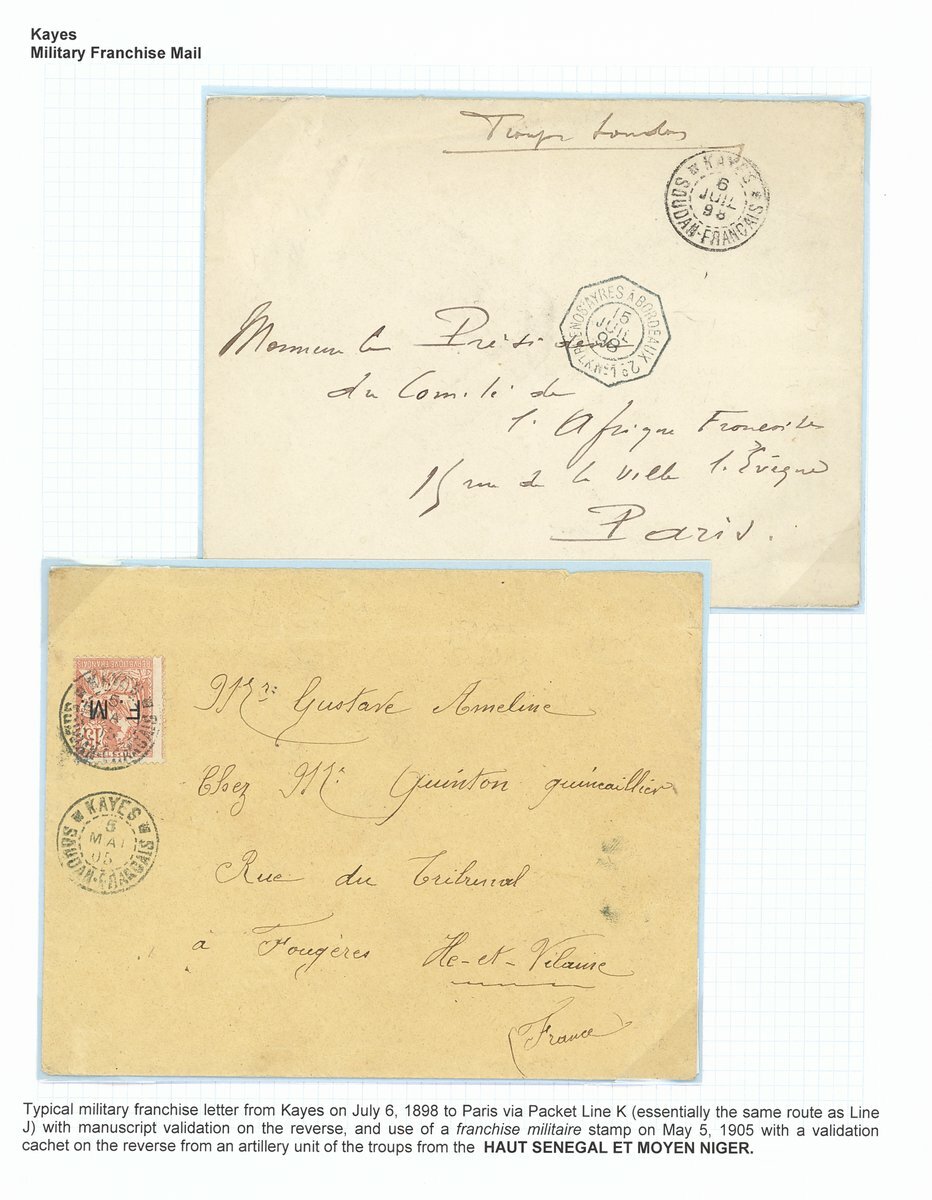 Kayes
Military Franchise Mail
Troupe Soudan
KAYES
6
JUIL
98
SOUDAN-FRANCAIS
BUENOS-AYRES A BORDEAUX 2º
15
JUIL
98
Monsieur le Président
du Comité de
l'Afrique Française
15 rue de la Ville l'Évêque
Paris.
REPUBLIQUE FRANCAISE
F M
15
KAYES
5
SOUDAN-FRANCAIS
KAYES
5
MAI
05
SOUDAN-FRANCAIS
Mr: Gustave Ameline
Chez Mr: Quinton quincaillier
Rue du Tribunal
à Fougères Ile-et-Vilaine
(France)
Typical military franchise letter from Kayes on July 6, 1898 to Paris via Packet Line K (essentially the same route as Line
J) with manuscript validation on the reverse, and use of a franchise militaire stamp on May 5, 1905 with a validation
cachet on the reverse from an artillery unit of the troups from the HAUT SENEGAL ET MOYEN NIGER.